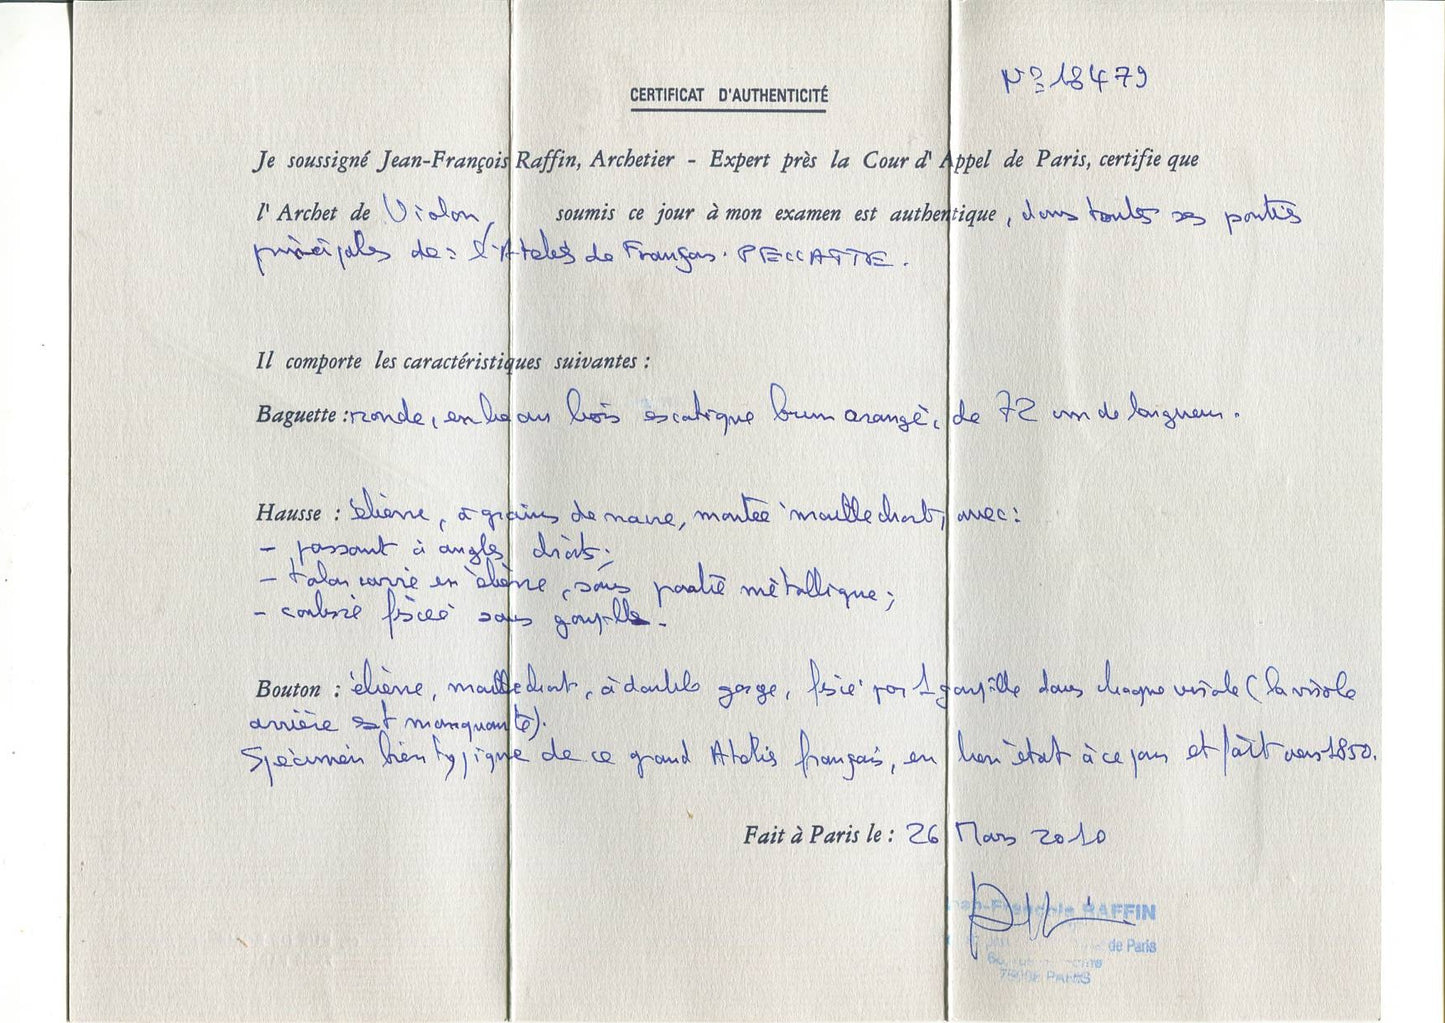 N° 18479
CERTIFICAT D'AUTHENTICITÉ
Je soussigné Jean-François Raffin, Archetier - Expert près la Cour d'Appel de Paris, certifie que
l'Archet de Violon, soumis ce jour à mon examen est authentique, dans toutes ses parties
principales de : l'Atelier de François PECCATTE.
Il comporte les caractéristiques suivantes :
Baguette : ronde, en beau bois exotique brun orangé, de 72 cm de longueur.
Hausse : ébène, à grains de nacre, montée maillechort, avec :
- passant à angles droits ;
- talon carré en ébène, sans partie métallique ;
- coulisse fixée sans goupille.
Bouton : ébène, maillechort, à double gorge, fixé par 1 goupille dans chaque virole (la virole
arrière est manquante).
Spécimen bien typique de ce grand Atelier français, en bon état à ce jour et fait vers 1850.
Fait à Paris le : 26 Mars 2010
Jean-François RAFFIN
de Paris
PARIS